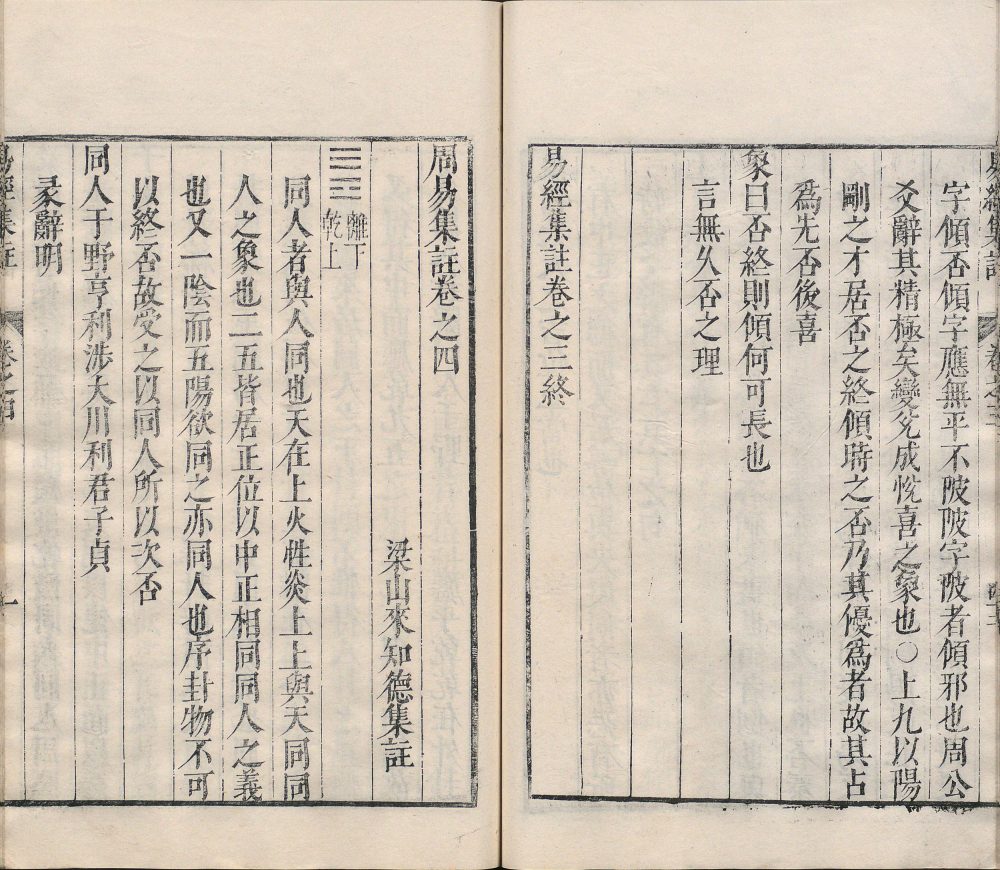 字傾否傾字應無平不陂陂字陂者傾邪也周公
爻辭其精極矣變兌成悅喜之象也○上九以陽
剛之才居否之終傾時之否乃其優爲者故其占
爲先否後喜
象曰否終則傾何可長也
言無久否之理
易經集註卷之三終
周易集註卷之四
梁山來知德集註
離下
乾上
同人者與人同也天在上火性炎上上與天同同
人之象也二五皆居正位以中正相同同人之義
也又一陰而五陽欲同之亦同人也序卦物不可
以終否故受之以同人所以次否
同人于野亨利涉大川利君子貞
彖辭明
易經集註
卷之四
一